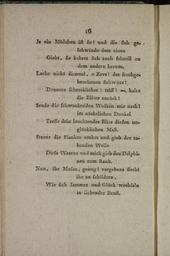 16
Je ein Mädchen ist sie! und die sich ge-
schwinde dem einen
Giebt, sie kehret sich auch schnell zu
dem andern herum,
Lache nicht diesmal, Zevs! der frechge-
brochenen Schwüre!
Donnere schrecklicher! triff! — halte
die Blitze zurück!
Sende die schwankenden Wolken mir nach!
im nächtlichen Dunkel
Treffe dein leuchtender Blitz diesen un-
glücklichen Mast.
Streue die Planken umher und gieb der to-
benden Welle
Diese Waaren und mich gieb den Delphi-
nen zum Raub.
Nun, ihr Musen, genug! vergebens strebt
ihr zu schildern,
Wie sich Jammer und Glück wechseln
in liebender Brust.